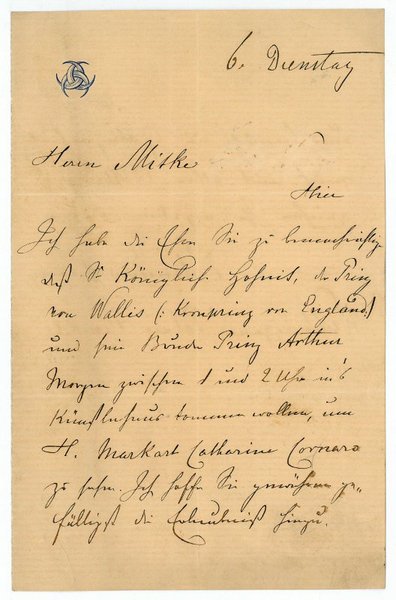 6. Dienstag
Herrn Mitke
Hier
Ich habe die Ehre Sie zu benachrichtigen
daß Sr Königlich Hoheit, der Prinz
von Wallis (: Kronprinz von England:)
und sein Bruder Prinz Arthur
Morgen zwischen 1 und 2 Uhr in's
Künstlerhaus kommen wollen, um
H. Markart Catharine Cornaro
zu sehen. Ich hoffe Sie gewähren ge-
fälligst die Erlaubniß hinzu.